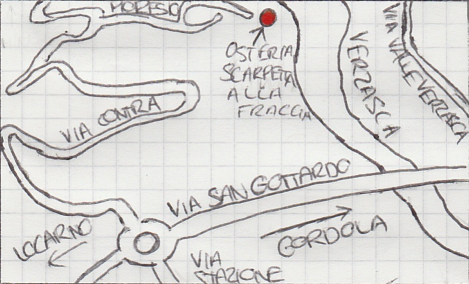 MORESIO
OSTERIA
SCARPETTA
ALLA
FRACCIA
VERZASCA
VIA VALLE VERZASCA
VIA CONTRA
VIA SAN GOTTARDO
LOCARNO
VIA
STAZIONE
GORDOLA